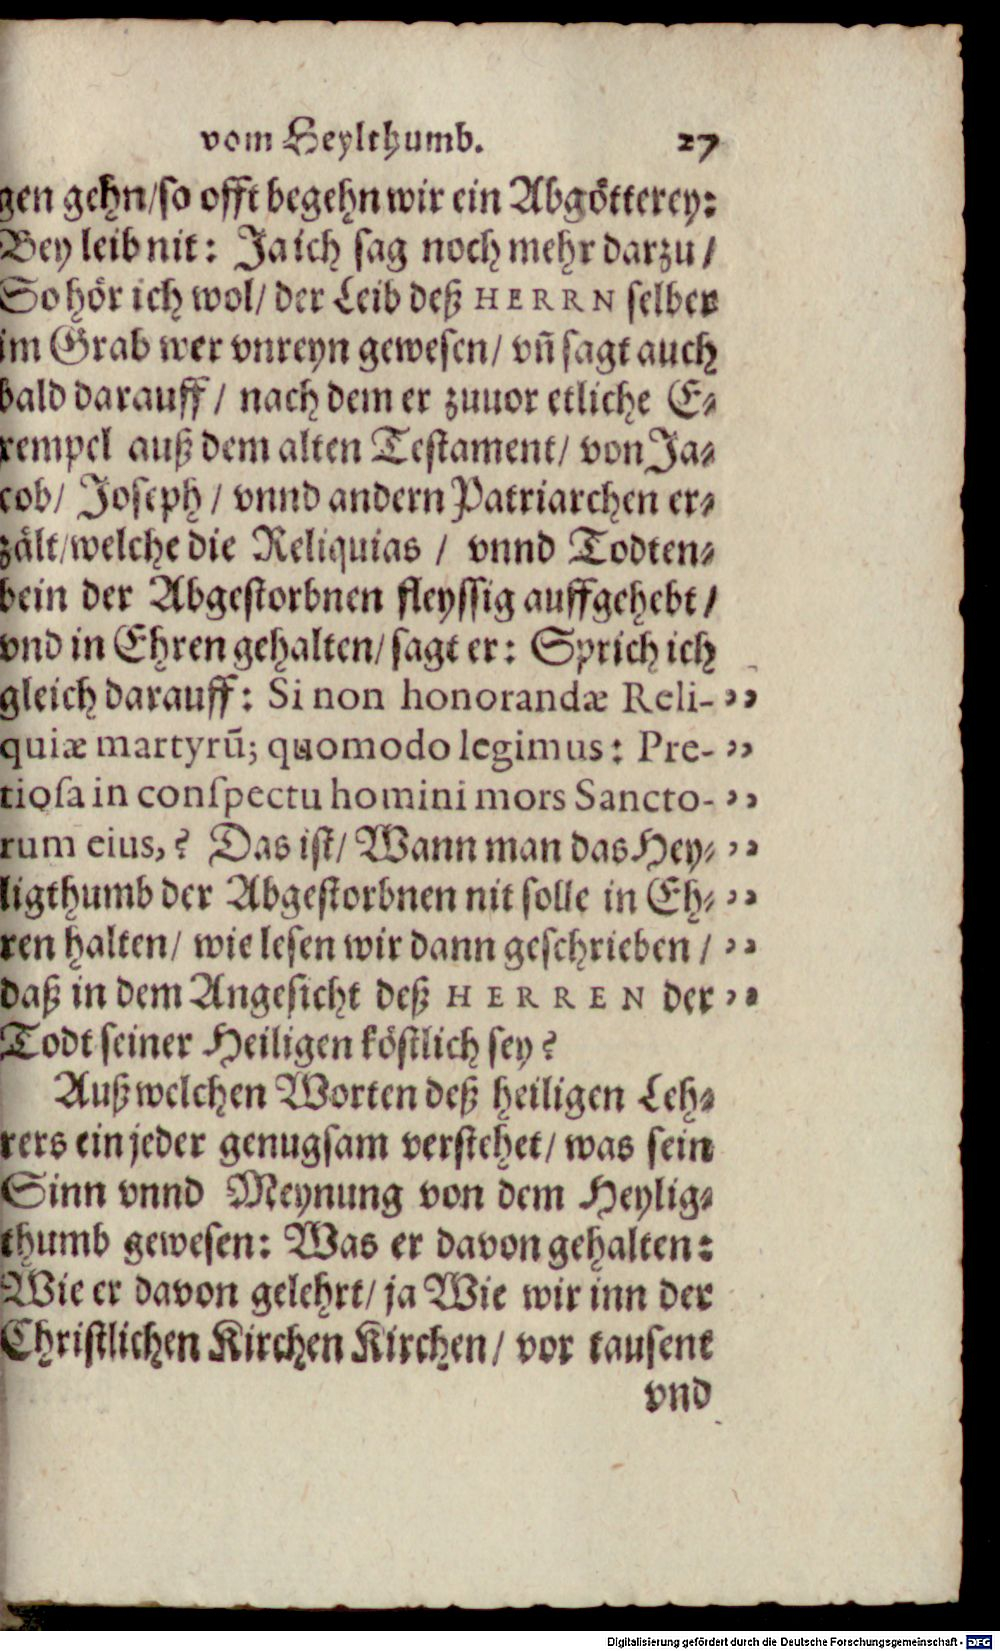 vom Heylthumb. 27
gen gehn/so offt begehn wir ein Abgötterey:
Bey leib nit: Ja ich sag noch mehr darzu/
So hör ich wol/ der Leib deß HERRN selber
im Grab wer vnreyn gewesen/ vñ sagt auch
bald darauff/ nach dem er zuuor etliche E-
xempel auß dem alten Testament/ von Ja-
cob/ Joseph/ vnnd andern Patriarchen er-
zält/welche die Reliquias/ vnnd Todten-
bein der Abgestorbnen fleyssig auffgehebt/
vnd in Ehren gehalten/ sagt er: Sprich ich
gleich darauff: Si non honorandæ Reli- ,,
quiæ martyrū; quomodo legimus: Pre- ,,
tiosa in conspectu homini mors Sancto- ,,
rum eius,? Das ist/ Wann man das Hey- ,,
ligthumb der Abgestorbnen nit solle in Eh- ,,
ren halten/ wie lesen wir dann geschrieben/ ,,
daß in dem Angesicht deß HERREN der ,,
Todt seiner Heiligen köstlich sey?
Auß welchen Worten deß heiligen Leh-
rers ein jeder genugsam verstehet/ was sein
Sinn vnnd Meynung von dem Heylig-
thumb gewesen: Was er davon gehalten:
Wie er davon gelehrt/ ja Wie wir inn der
Christlichen Kirchen Kirchen/ vor tausent
vnd
Digitalisierung gefördert durch die Deutsche Forschungsgemeinschaft - DFG